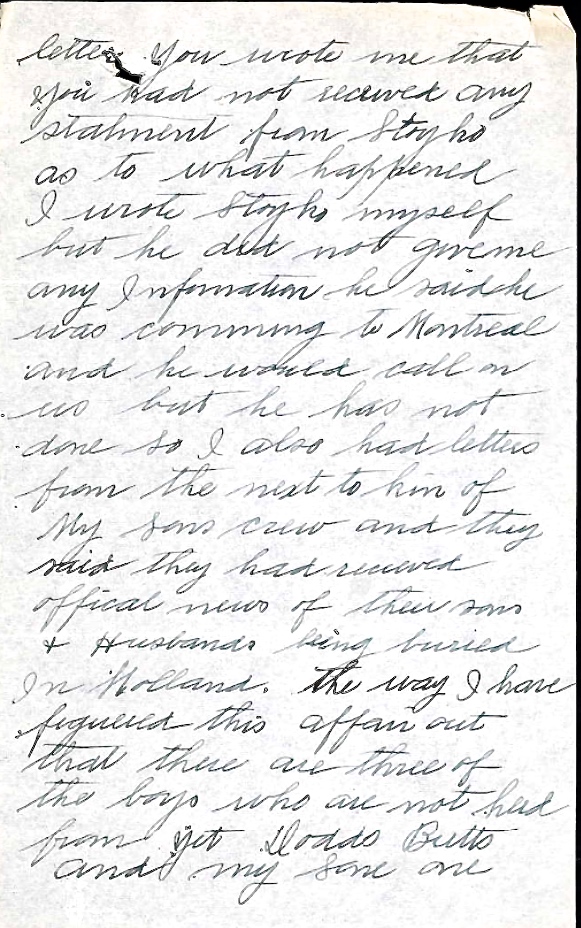 letter You wrote me that
you had not received any
statment from Stoyko
as to what happened
I wrote Stoyko myself
but he did not give me
any Information he said he
was comming to Montreal
and he would call on
us but he has not
done so I also had letters
from the next to kin of
My sons crew and they
said they had recieved
offical news of their sons
& Husbands being buried
In Holland. the way I have
figuered this affair out
that there are three of
the boys who are not herd
from yet Dodds Butts
and my sone one